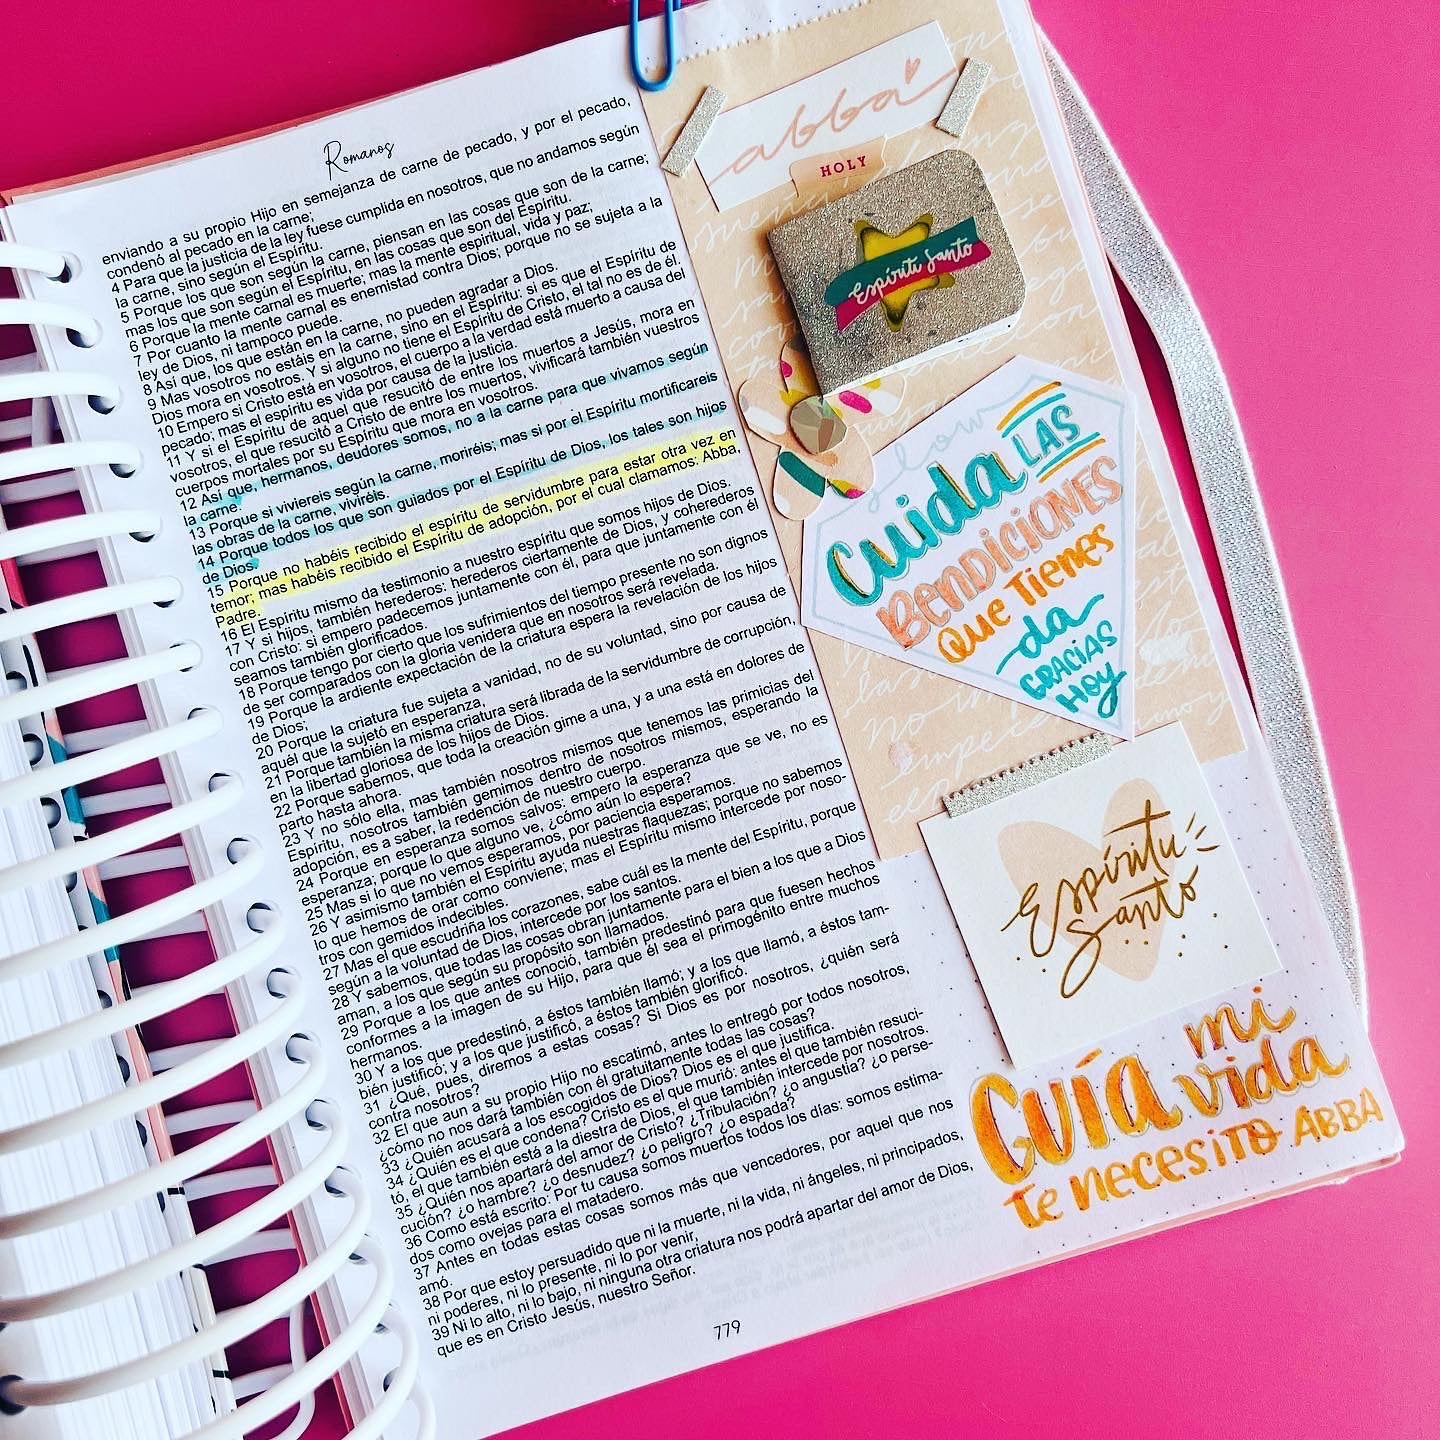 Romanos
enviando a su propio Hijo en semejanza de carne de pecado, y por el pecado,
condenó al pecado en la carne;
4 Para que la justicia de la ley fuese cumplida en nosotros, que no andamos según
la carne, sino según el Espíritu.
5 Porque los que son según la carne, piensan en las cosas que son de la carne;
mas los que son según el Espíritu, en las cosas que son del Espíritu.
6 Porque la mente carnal es muerte; mas la mente espiritual, vida y paz;
7 Por cuanto la mente carnal es enemistad contra Dios; porque no se sujeta a la
ley de Dios, ni tampoco puede.
8 Así que, los que están en la carne, no pueden agradar a Dios.
9 Mas vosotros no estáis en la carne, sino en el Espíritu: si es que el Espíritu de
Dios mora en vosotros. Y si alguno no tiene el Espíritu de Cristo, el tal no es de él.
10 Empero si Cristo está en vosotros, el cuerpo a la verdad está muerto a causa del
pecado; mas el espíritu es vida por causa de la justicia.
11 Y si el Espíritu de aquel que resucitó de entre los muertos a Jesús, mora en
vosotros, el que resucitó a Cristo de entre los muertos, vivificará también vuestros
cuerpos mortales por su Espíritu que mora en vosotros.
12 Así que, hermanos, deudores somos, no a la carne para que vivamos según
la carne.
13 Porque si viviereis según la carne, moriréis; mas si por el Espíritu mortificareis
las obras de la carne, viviréis.
14 Porque todos los que son guiados por el Espíritu de Dios, los tales son hijos
de Dios.
15 Porque no habéis recibido el espíritu de servidumbre para estar otra vez en
temor; mas habéis recibido el Espíritu de adopción, por el cual clamamos: Abba,
Padre.
16 El Espíritu mismo da testimonio a nuestro espíritu que somos hijos de Dios.
17 Y si hijos, también herederos: herederos ciertamente de Dios, y coherederos
con Cristo: si empero padecemos juntamente con él, para que juntamente con él
seamos también glorificados.
18 Porque tengo por cierto que los sufrimientos del tiempo presente no son dignos
de ser comparados con la gloria venidera que en nosotros será revelada.
19 Porque la ardiente expectación de la criatura espera la revelación de los hijos
de Dios;
20 Porque la criatura fue sujeta a vanidad, no de su voluntad, sino por causa de
aquél que la sujetó en esperanza,
21 Porque también la misma criatura será librada de la servidumbre de corrupción,
en la libertad gloriosa de los hijos de Dios.
22 Porque sabemos, que toda la creación gime a una, y a una está en dolores de
parto hasta ahora.
23 Y no sólo ella, mas también nosotros mismos que tenemos las primicias del
Espíritu, nosotros también gemimos dentro de nosotros mismos, esperando la
adopción, es a saber, la redención de nuestro cuerpo.
24 Porque en esperanza somos salvos: empero la esperanza que se ve, no es
esperanza; porque lo que alguno ve, ¿cómo aún lo espera?
25 Mas si lo que no vemos esperamos, por paciencia esperamos.
26 Y asimismo también el Espíritu ayuda nuestras flaquezas; porque no sabemos
lo que hemos de orar como conviene; mas el Espíritu mismo intercede por noso-
tros con gemidos indecibles.
27 Mas el que escudriña los corazones, sabe cuál es la mente del Espíritu, porque
según a la voluntad de Dios, intercede por los santos.
28 Y sabemos, que todas las cosas obran juntamente para el bien a los que a Dios
aman, a los que según su propósito son llamados.
29 Porque a los que antes conoció, también predestinó para que fuesen hechos
conformes a la imagen de su Hijo, para que él sea el primogénito entre muchos
hermanos.
30 Y a los que predestinó, a éstos también llamó; y a los que llamó, a éstos tam-
bién justificó; y a los que justificó, a éstos también glorificó.
31 ¿Qué, pues, diremos a estas cosas? Si Dios es por nosotros, ¿quién será
contra nosotros?
32 El que aun a su propio Hijo no escatimó, antes lo entregó por todos nosotros,
¿cómo no nos dará también con él gratuitamente todas las cosas?
33 ¿Quién acusará a los escogidos de Dios? Dios es el que justifica.
34 ¿Quién es el que condena? Cristo es el que murió: antes el que también resuci-
tó, el que también está a la diestra de Dios, el que también intercede por nosotros.
35 ¿Quién nos apartará del amor de Cristo? ¿Tribulación? ¿o angustia? ¿o perse-
cución? ¿o hambre? ¿o desnudez? ¿o peligro? ¿o espada?
36 Como está escrito: Por tu causa somos muertos todos los días: somos estima-
dos como ovejas para el matadero.
37 Antes en todas estas cosas somos más que vencedores, por aquel que nos
amó.
38 Por que estoy persuadido que ni la muerte, ni la vida, ni ángeles, ni principados,
ni poderes, ni lo presente, ni lo por venir,
39 Ni lo alto, ni lo bajo, ni ninguna otra criatura nos podrá apartar del amor de Dios,
que es en Cristo Jesús, nuestro Señor.
779
abba
HOLY
Espíritu Santo
glow
Cuida LAS
BENDICIONES
QUE TIENES
da
GRACIAS
HOY
Espíritu
Santo
GUÍA mi
vida
te necesito ABBA